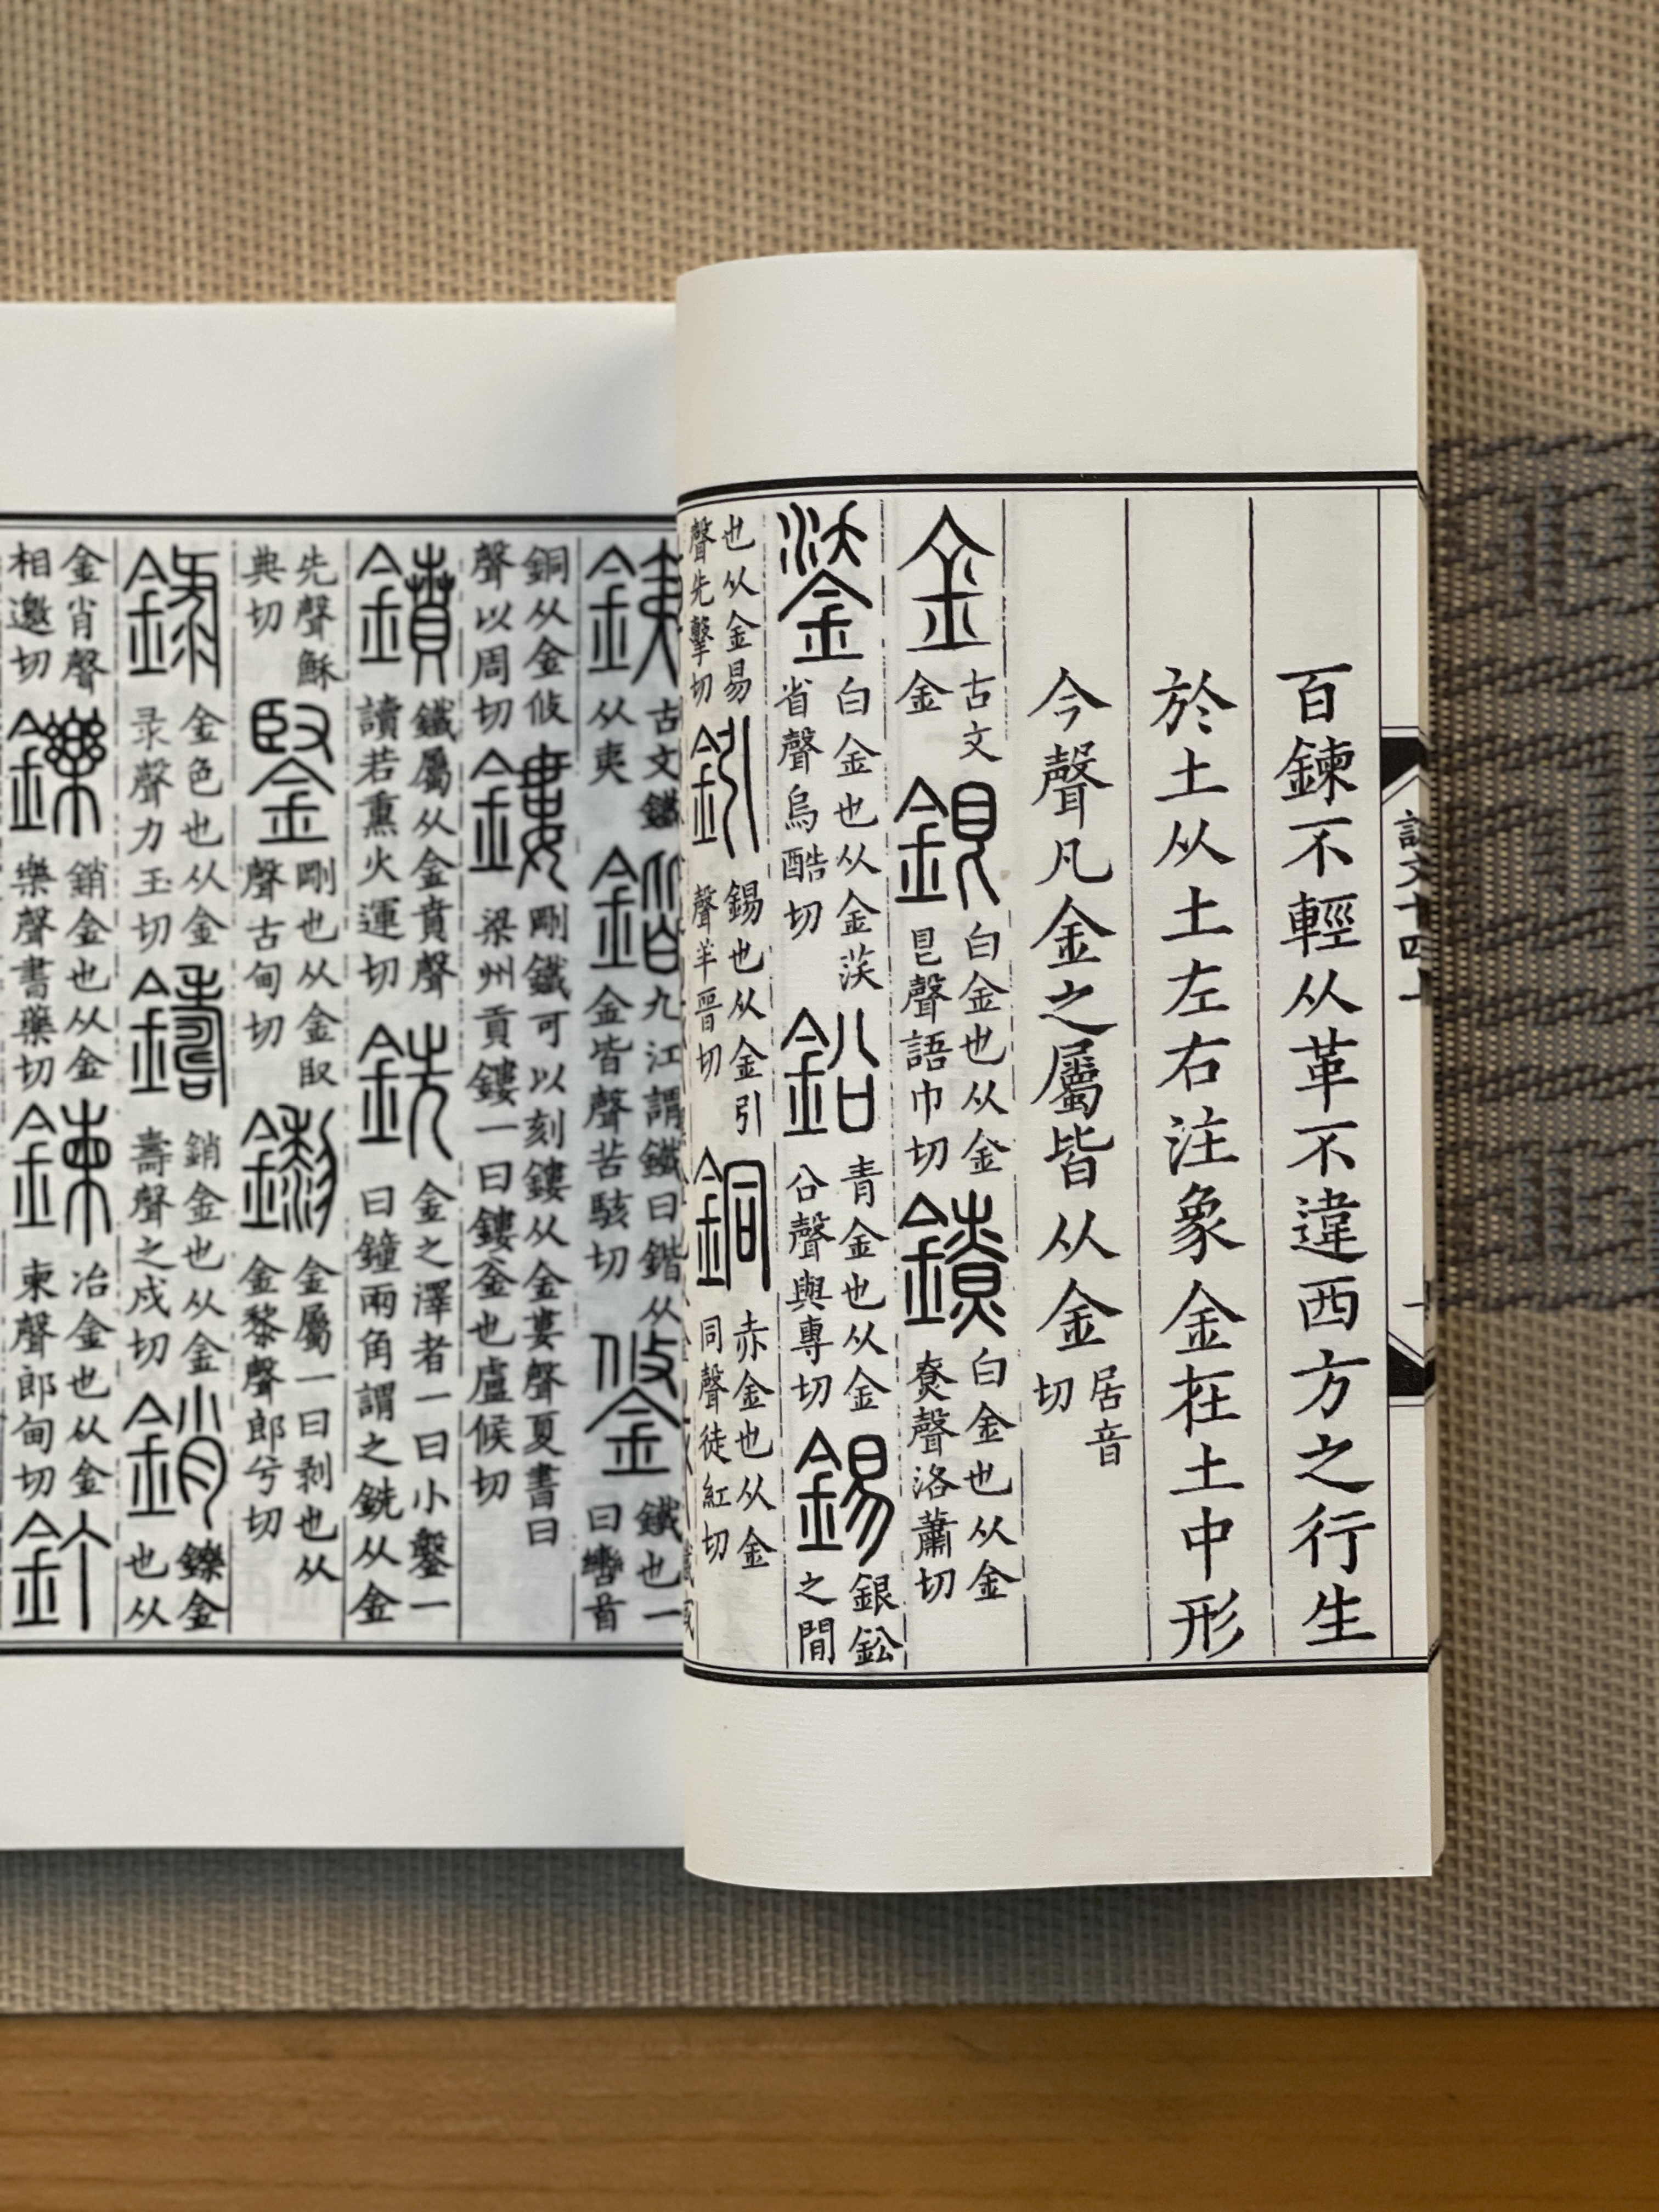 百鍊不輕从革不違西方之行生
於土从土左右注象金在土中形
今聲凡金之屬皆从金居音切
金古文金銀白金也从金㫐聲語巾切鐐白金也从金尞聲洛蕭切
鋈白金也从金芺省聲烏酷切鉛青金也从金㕣聲與專切錫銀鈆之間
也从金易聲先擊切鈏錫也从金引聲羊晉切銅赤金也从金同聲徒紅切
銕古文鐵从夷鍇九江謂鐵曰鍇从金皆聲苦駭切鋚鐵也一曰轡首
銅从金攸聲以周切鏤剛鐵可以刻鏤从金婁聲夏書曰梁州貢鏤一曰鏤釜也盧候切
鐼鐵屬从金賁聲讀若熏火運切銑金之澤者一曰小鑿一曰鐘兩角謂之銑从金
先聲穌典切鋻剛也从金臤聲古甸切鑗金屬一曰剥也从金黎聲郎兮切
録金色也从金录聲力玉切鑄銷金也从金壽聲之戍切銷鑠金也从
金肖聲相邀切鑠銷金也从金樂聲書藥切鍊冶金也从金柬聲郎甸切釘